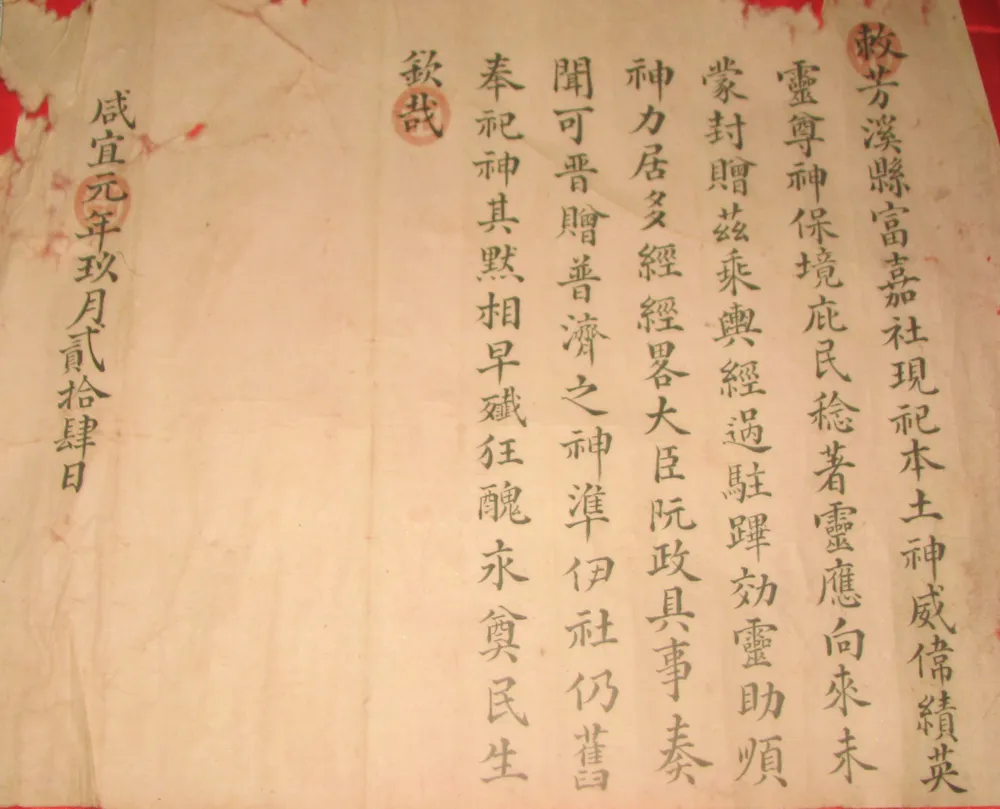 敕芳溪縣富嘉社現祀本土神威偉績英
靈尊神保境庇民稔著靈應向來未
蒙封贈茲乘輿經過駐蹕効靈助順
神力居多經經畧大臣阮政具事奏
聞可晋贈普濟之神準伊社仍舊
奉祀神其默相早殲狂醜永奠民生
欽哉
咸宜元年玖月貳拾肆日